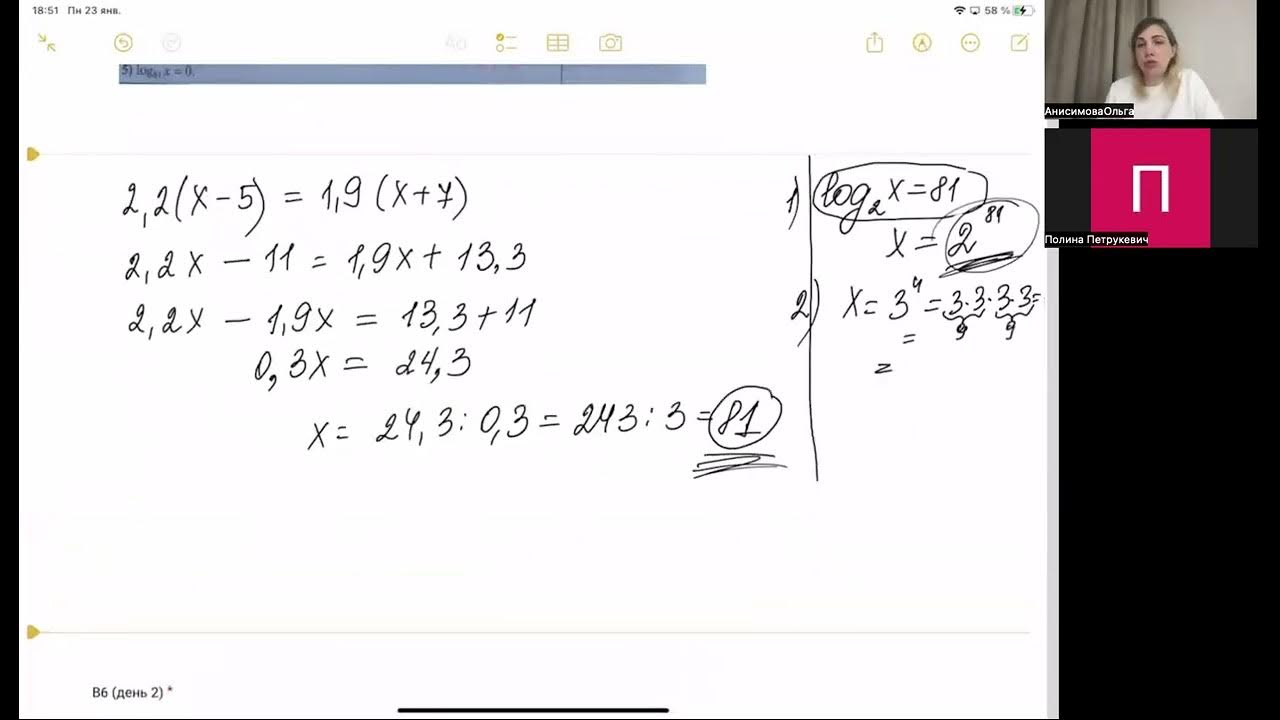 18:51 Пн 23 янв.
58 %
5) log₈₁ x = 0.
2,2(x-5) = 1,9(x+7)
2,2x - 11 = 1,9x + 13,3
2,2x - 1,9x = 13,3+11
0,3x = 24,3
x= 24,3 : 0,3 = 243 : 3 = 81
1) log₂ x = 81
x = 2⁸¹
2) x = 3⁴ = 3·3·3·3 =
9 9
=
=
В6 (день 2) *
АнисимоваОльга
П
Полина Петрукевич